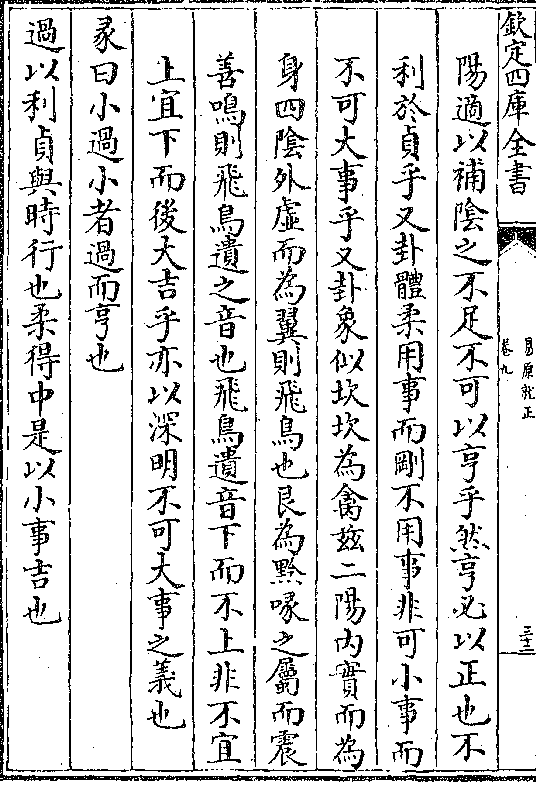 欽定四庫全書
易原就正
卷九
三十三
陽過以補陰之不足不可以亨乎然亨必以正也不
利於貞乎又卦體柔用事而剛不用事非可小事而
不可大事乎又卦象似坎坎為禽玆二陽內實而為
身四陰外虛而為翼則飛鳥也艮為黔喙之屬而震
善鳴則飛鳥遺之音也飛鳥遺音下而不上非不宜
上宜下而後大吉乎亦以深明不可大事之義也
彖曰小過小者過而亨也
過以利貞與時行也柔得中是以小事吉也